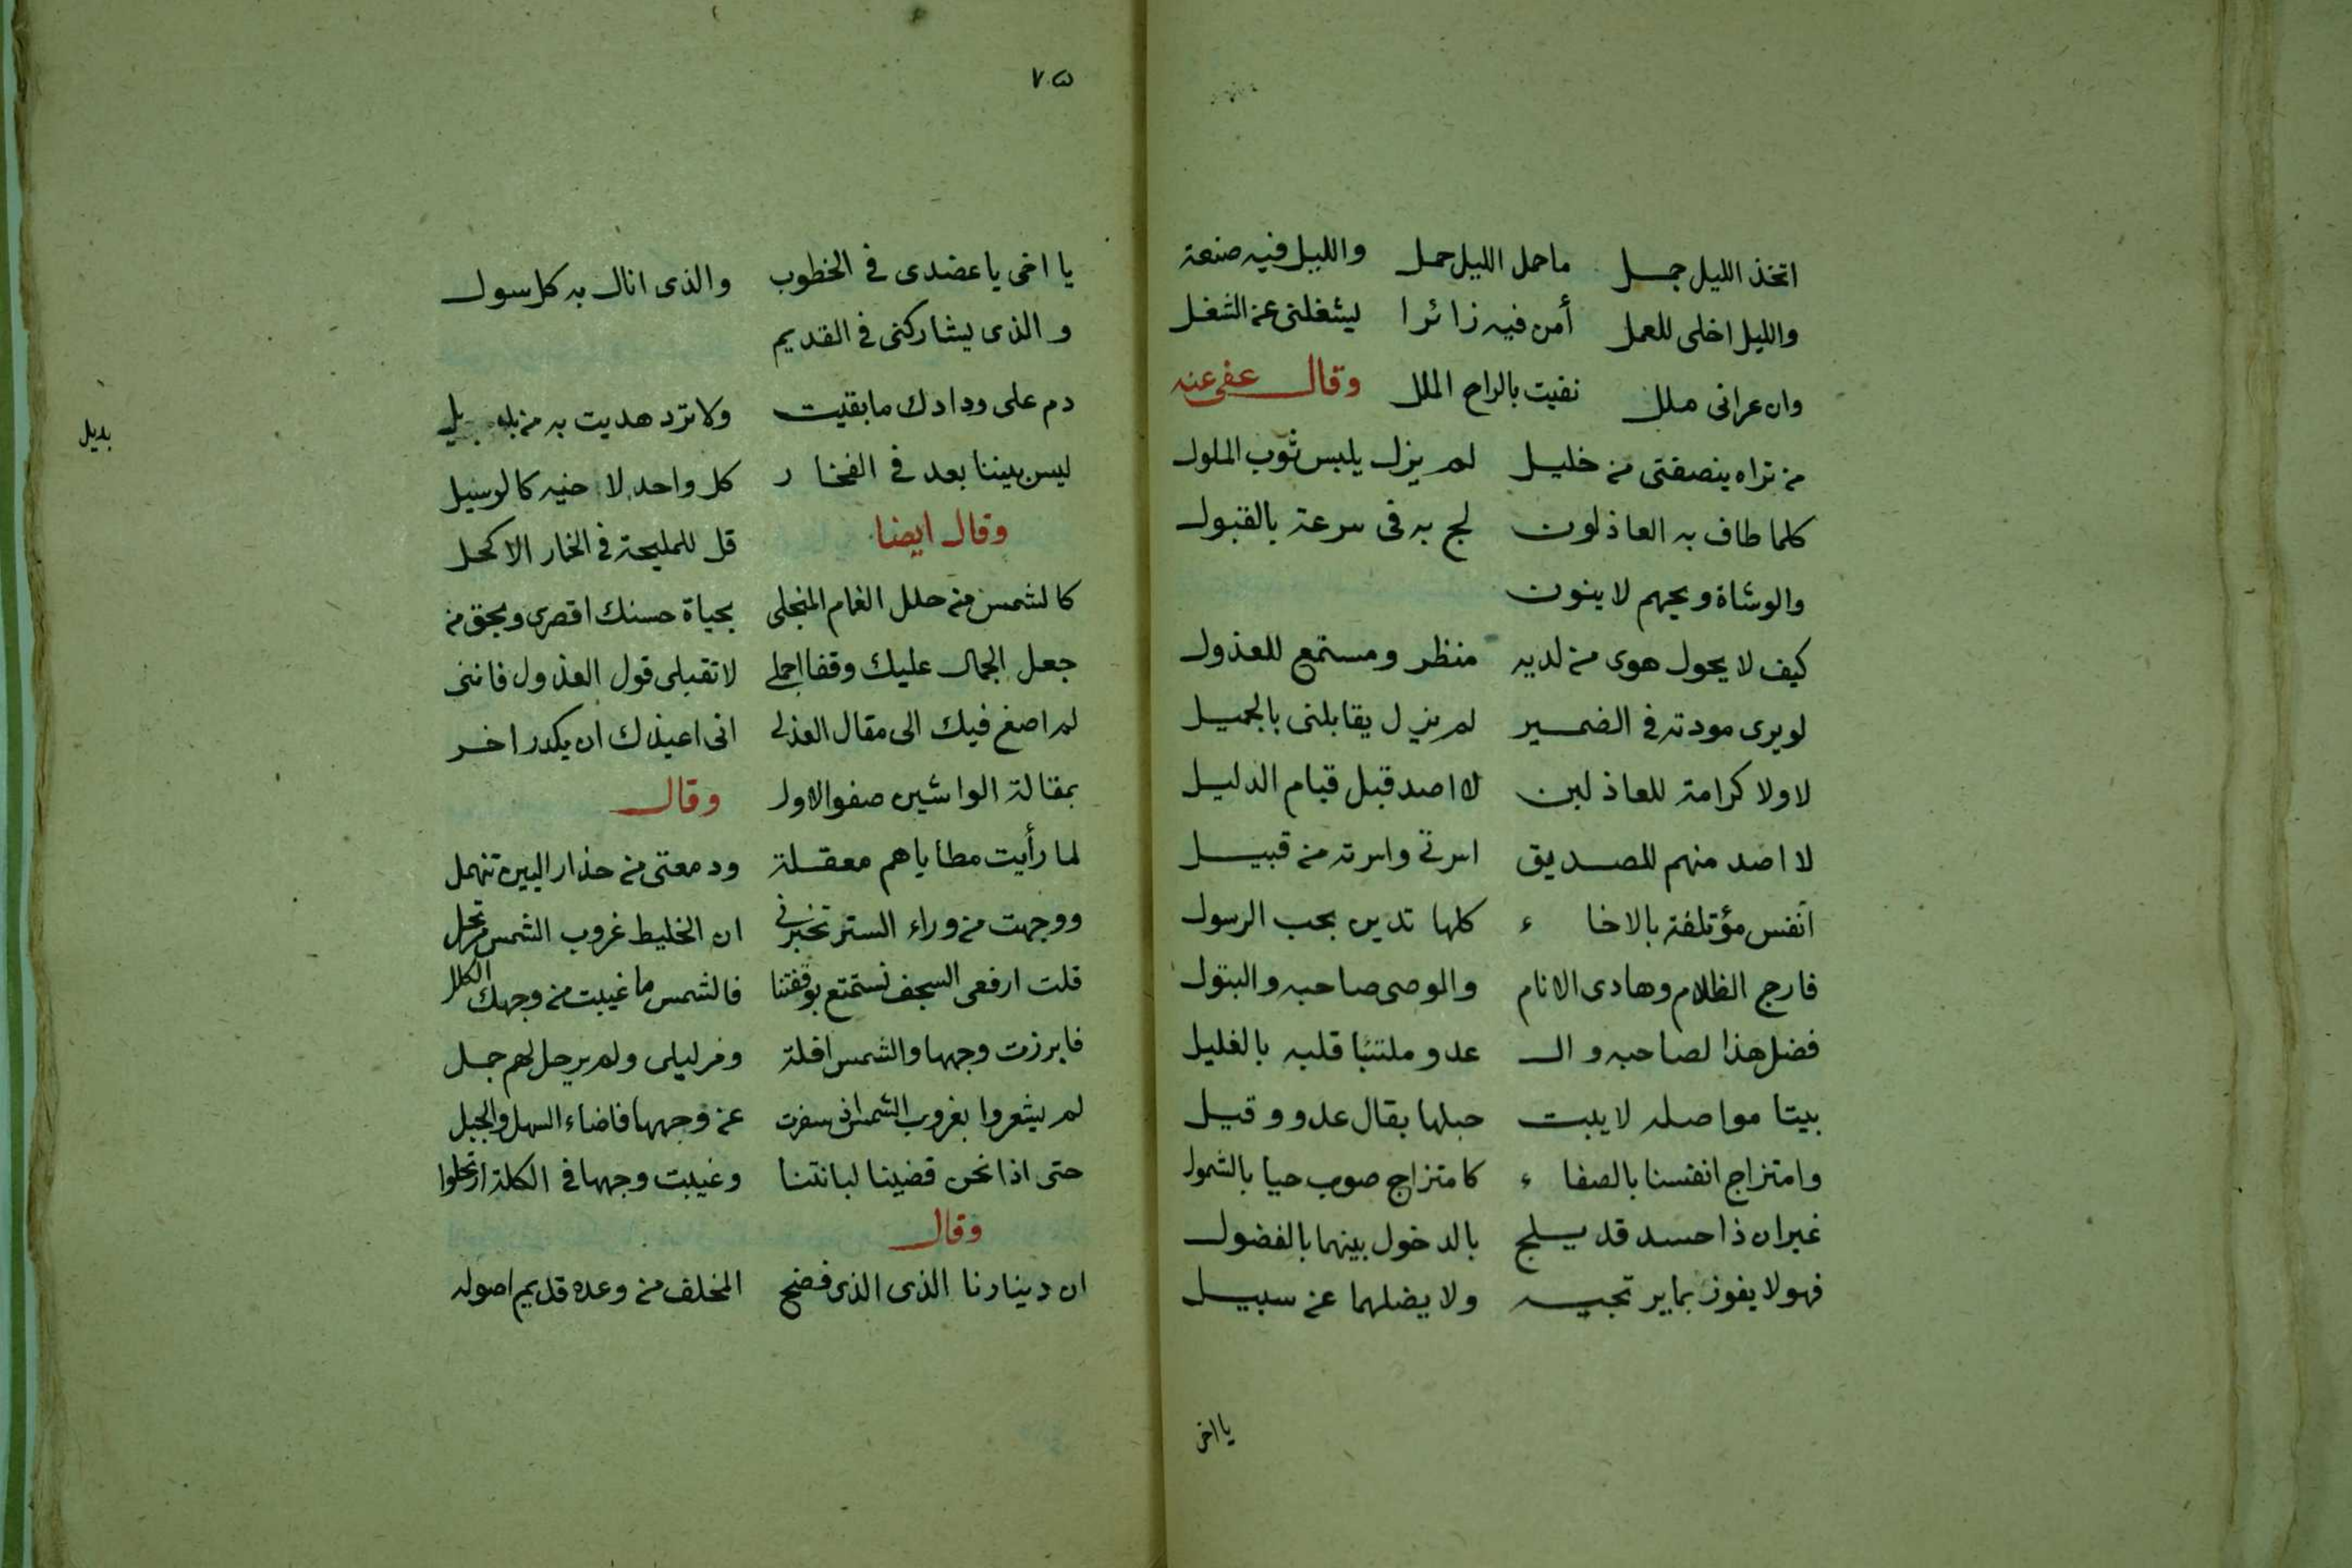 اتخذ الليل جمل ماحمل الليل حمل والليل فيه صنعة
والليل اخلى للعمل أمن فيه زائرا ليشغلنى عن الشغل
وان عرانى ملل نفيت بالراح الملل وقال عفى عنه
من تراه ينصفنى من خليل لم يزل يلبس ثوب الملول
كلما طاف به العاذلون لج به فى سرعة بالقبول
والوشاة ويحهم لا ينون
كيف لا يحول هوى من لديه منظر ومستمع للعذول
لويرى مودته فى الضمير لم يزل يقابلنى بالجميل
لا ولا كرامة للعاذلين لا اصد قبل قيام الدليل
لا اصد منهم للصديق اسرتى واسرته من قبيل
أنفس مؤتلفة بالاخاء كلها تدين بحب الرسول
فارج الظلام وهادى الانام والوصى صاحبه والبتول
فضل هذا لصاحبه والـ عدو ملتئبا قلبه بالغليل
بيتا مواصله لا يبت حبلها بقال عدو وقيل
وامتزاج انفسنا بالصفاء كامتزاج صوب حيا بالشمول
غيران ذا حسد قد يسلج بالدخول بينهما بالفضول
فهو لا يفوز بما يرتجيه ولا يضلهما عن سبيل
يا اخى
٧٥
يا اخى يا عضدى فى الخطوب والذى انال به كل سول
والذى يشاركنى فى القديم
دم على ودادك ما بقيت ولا ترد هديت به من بديل
بديل
ليس بيننا بعد فى الفخار كل واحد لاخيه كالوسيل
وقال ايضا قل للمليحة فى الخمار الاكحل
كالشمس من حلل الغمام المنجلى بحياة حسنك اقصرى وبحق من
جعل الجمال عليك وقفا اجملى لا تقبلى قول العذول فاننى
لم اصغ فيك الى مقال العذل انى اعيذك ان يكدر اخر
بمقالة الواشين صفو الاول وقال
لما رأيت مطاياهم معقلة ودمعتى من حذار البين تنهمل
ووجهت من وراء الستر تخبرنى ان الخليط غروب الشمس مرتحل
قلت ارفعى السجف نستمتع بوقفتنا فالشمس ما غيبت من وجهك الكلل
فابرزت وجهها والشمس افلة وفر ليلى ولم يرحل لهم جمل
لم يشعروا بغروب الشمس اذ سفرت عن وجهها فاضاء السهل والجبل
حتى اذا نحن قضينا لبانتنا وغيبت وجهها فى الكلة ارتحلوا
وقال
ان دينارنا الذى الذى فضح المخلف من وعده قديم اصوله